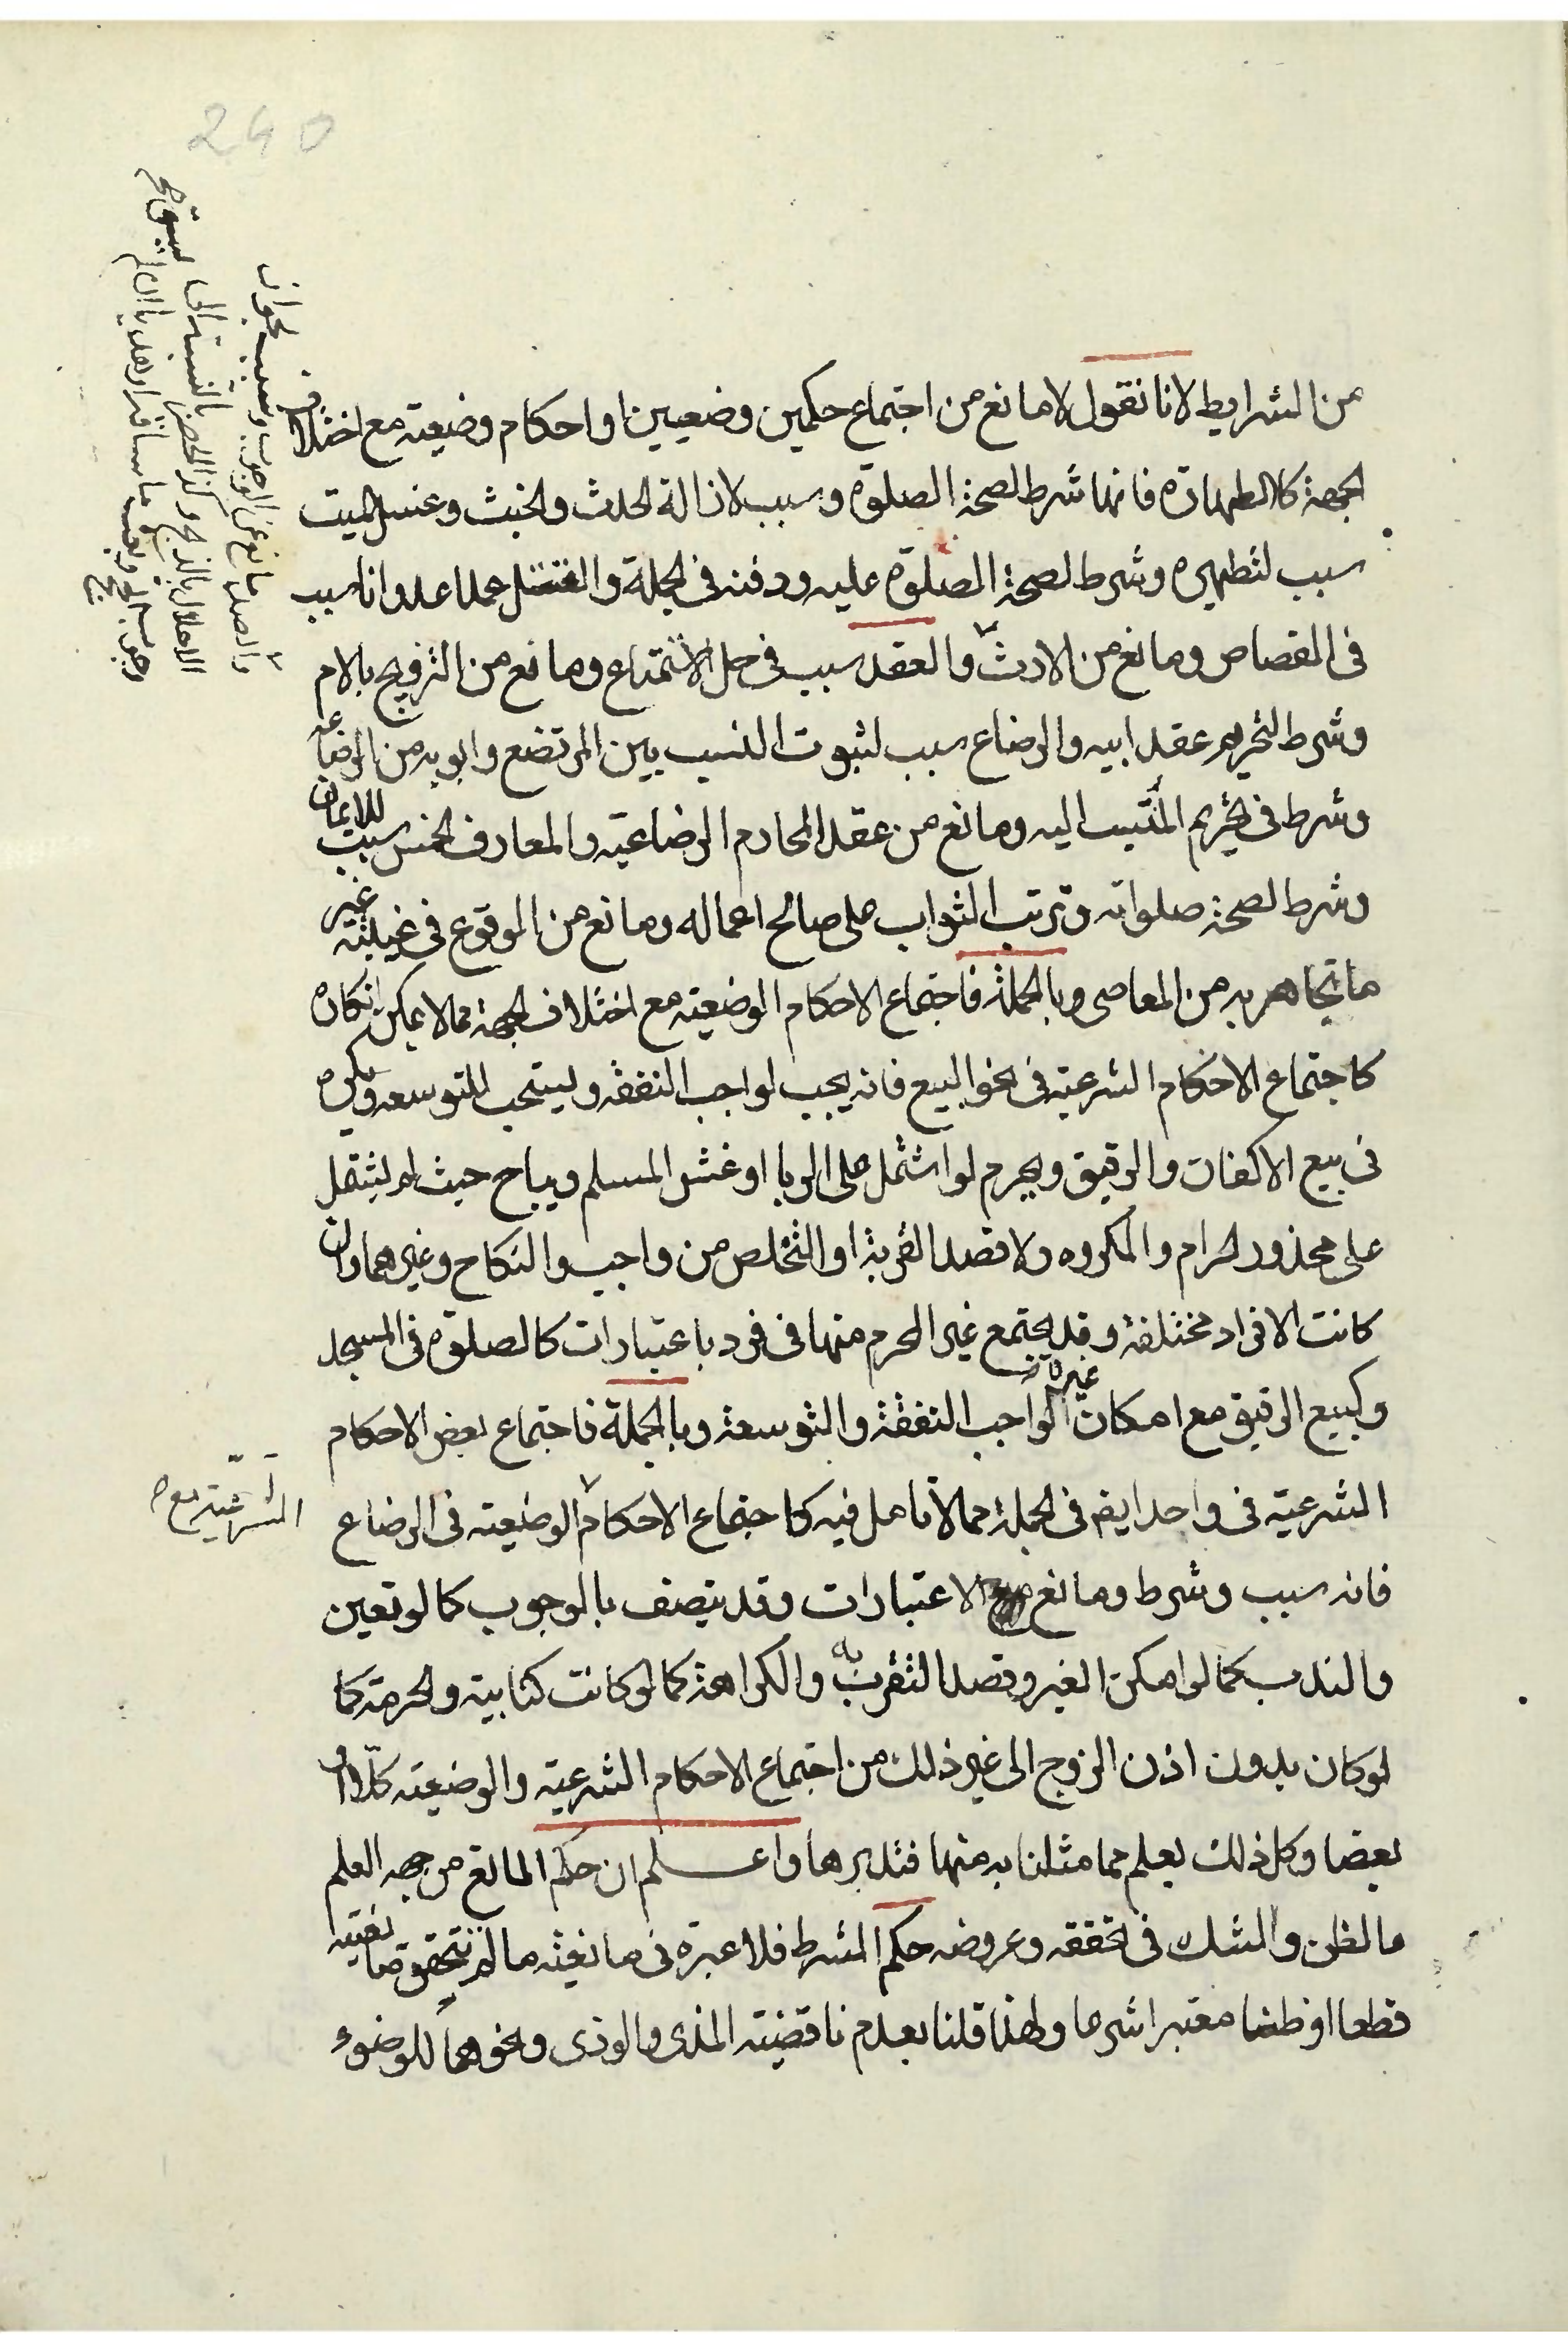 240
من الشرايط لانا نقول لا مانع من اجتماع حكمين وضعيين او احكام وضعية مع اختلاف
الجهة كالطهارة فانها شرط لصحة الصلوة وسبب لازالة الحدث والخبث وغسل الميت
سبب لتطهيره وشرط لصحة الصلوة عليه ودفنه في الجملة والقتل عملا عدوانا سبب
في القصاص ومانع من الارث والعقد سبب في حل الاستمتاع ومانع من التزويج بالام
وشرط لتحريم عقد ابيه والرضاع سبب لثبوت النسب بين المرتضع وابويه من الرضاعه
وشرط في تحريم المنتسب اليه ومانع من عقد المحارم الرضاعية والمعارف الخمس سبب للايمان
وشرط لصحة صلواته وترتب الثواب على صالح اعماله ومانع من الوقوع في غيبته غير
ما تجاهر به من المعاصي وبالجملة فاجتماع الاحكام الوضعية مع اختلاف الجهة مما لا يمكن انكاره
كاجتماع الاحكام الشرعية في نحو البيع فانه يجب لواجب النفقه ويستحب للتوسعه ويكره
في بيع الاكفان والرقيق ويحرم لو اشتمل على الربا او غش المسلم ويباح حيث لم يشتمل
على محذور الحرام والمكروه ولا قصد القربة او التخلص من واجب والنكاح وغيرهما وان
كانت الافراد مختلفة وقد يجتمع غير المحرم منها في فرد باعتبارات كالصلوة في المسجد
وكبيع الرقيق مع امكان غيره لواجب النفقة والتوسعة وبالجملة فاجتماع بعض الاحكام
الشرعية في واحد ايض في الجملة مما لا تامل فيه كاجتماع الاحكام الوضعية في الرضاع
الشرعية مع
فانه سبب وشرط ومانع الاعتبارات وقد يتصف بالوجوب كما لو تعين
والندب كما لو امكن الغير وقصد التقرب به والكراهة كما لو كانت كتابية والحرمة كما
لو كان بدون اذن الزوج الى غير ذلك من اجتماع الاحكام الشرعية والوضعية كلا او
بعضا وكل ذلك يعلم مما مثلنا به منها فتدبرها واعلم ان حكم المانع من جهه العلم
والظن والشك في تحققه وعروضه حكم الشرط فلا عبرة في مانعية ما لم تتحقق مانعيته
قطعا او ظنا معتبرا شرعا ولهذا قلنا بعدم ناقضية المذي والوذي ونحوهما للوضوء